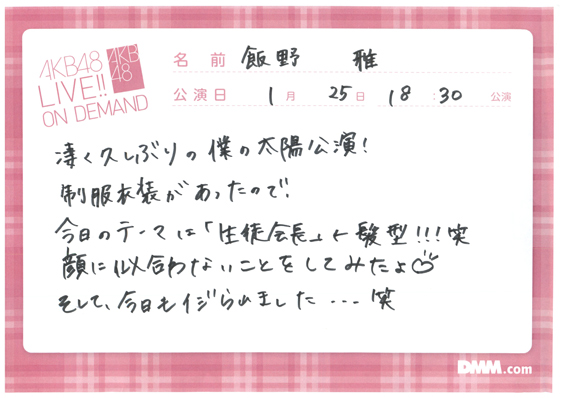 AKB48
LIVE!!
ON DEMAND
AKB
48
名前 飯野 雅
公演日 1月 25日 18:30 公演
凄く久しぶりの僕の太陽公演!
制服衣装があったので!
今日のテーマは「生徒会長」←髪型!!!笑
顔に似合わないことをしてみたよ
そして、今日もイジられました...笑
DMM.com